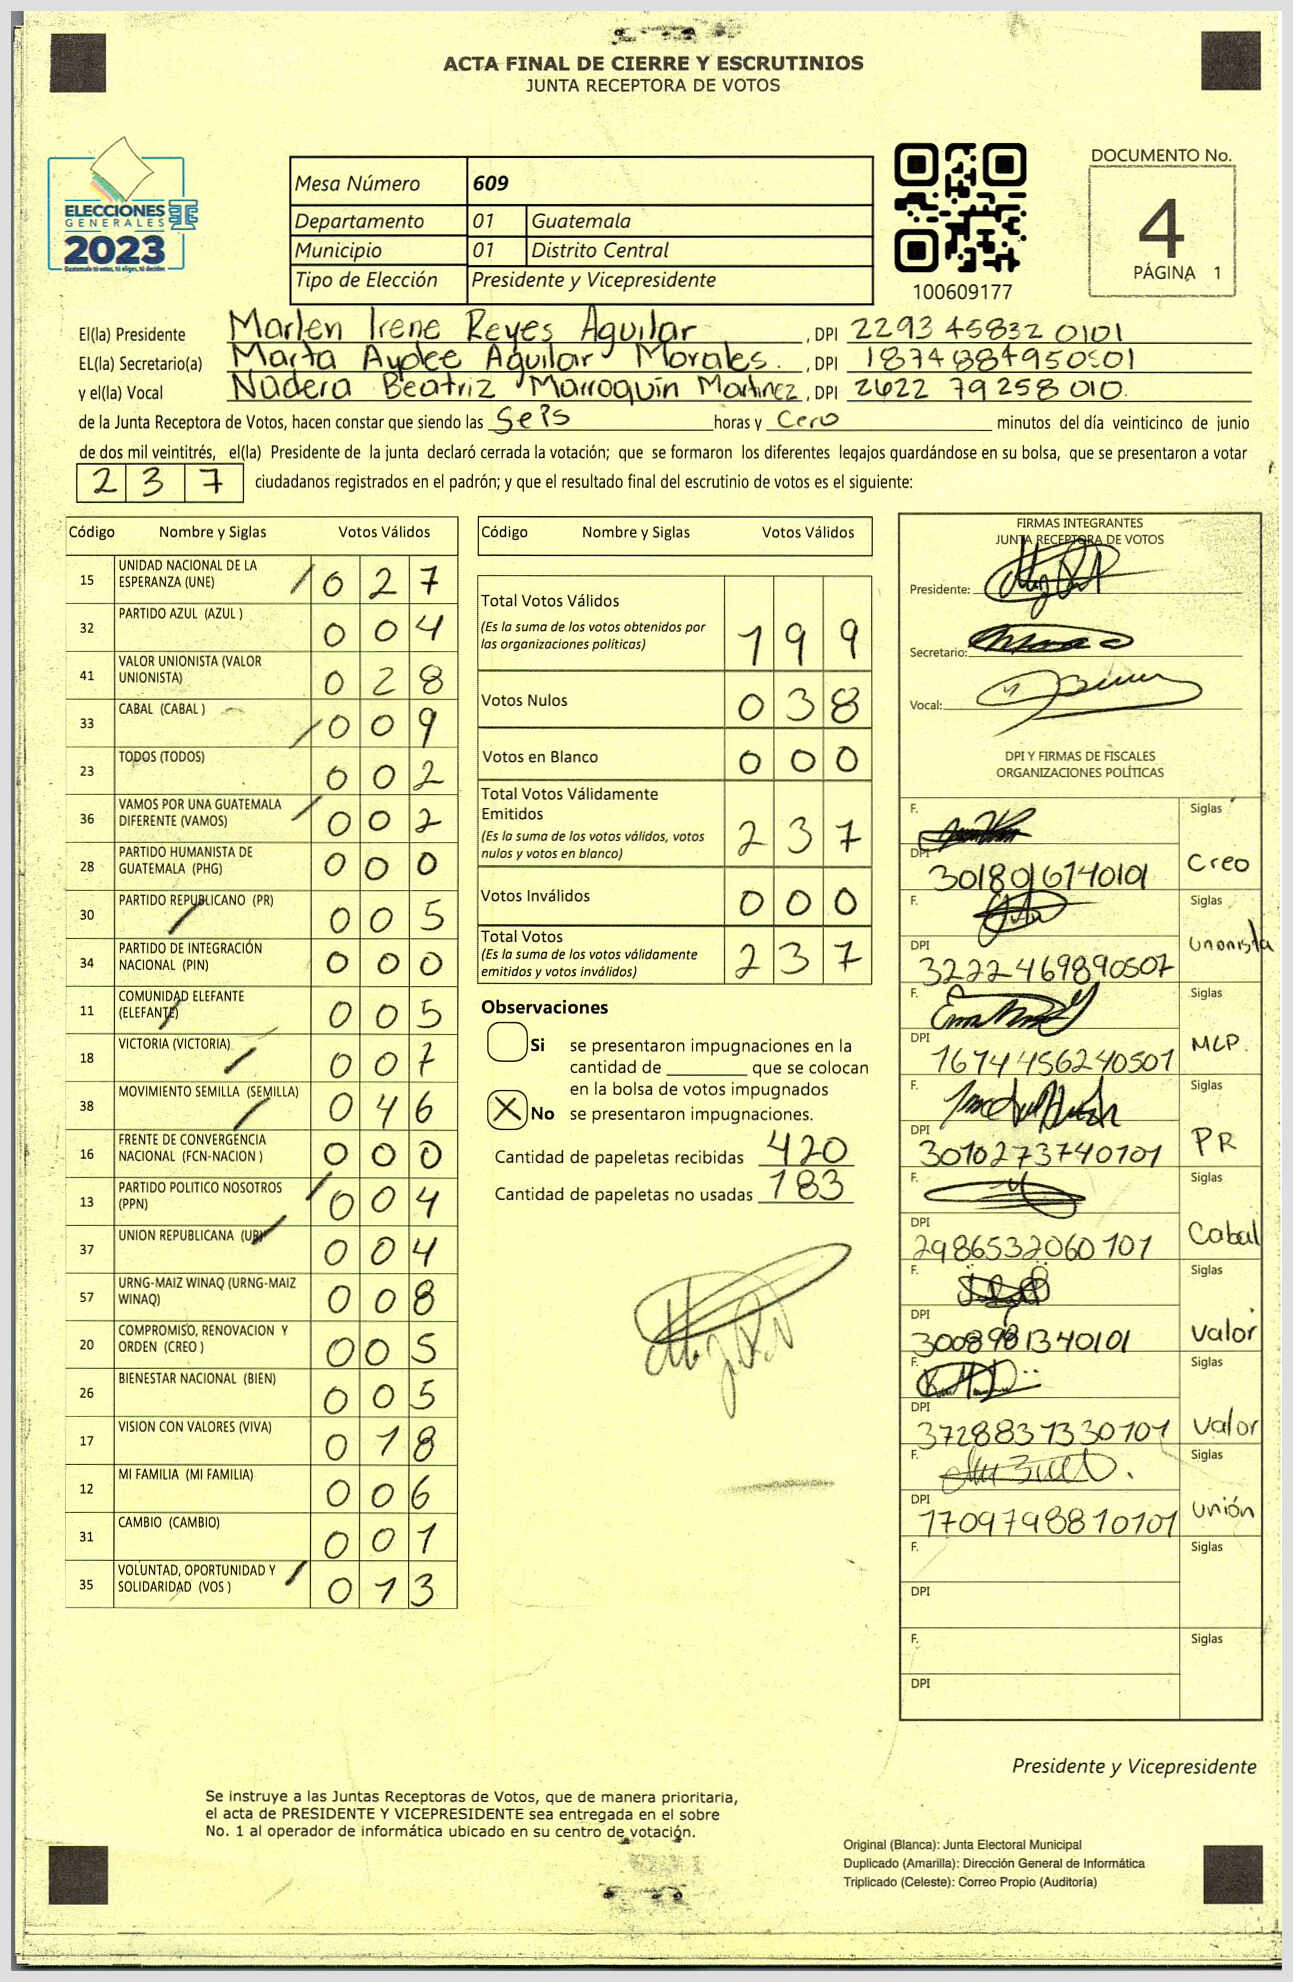 ACTA FINAL DE CIERRE Y ESCRUTINIOS
JUNTA RECEPTORA DE VOTOS
ELECCIONES
GENERALES
2023
Guatemala tú votas, tú eliges, tú decides
Mesa Número 609
Departamento 01 Guatemala
Municipio 01 Distrito Central
Tipo de Elección Presidente y Vicepresidente
100609177
DOCUMENTO No.
4
PÁGINA 1
El(la) Presidente Marlen Irene Reyes Aguilar, DPI 2293 45832 0101
EL(la) Secretario(a) Marta Aydee Aguilar Morales., DPI
y el(la) Vocal Nadera Beatriz Marroquín Martinez, DPI 2622 79258 010.
de la Junta Receptora de Votos, hacen constar que siendo las Seis horas y Cero minutos del día veinticinco de junio
de dos mil veintitrés, el(la) Presidente de la junta declaró cerrada la votación; que se formaron los diferentes legajos guardándose en su bolsa, que se presentaron a votar
2 3 7 ciudadanos registrados en el padrón; y que el resultado final del escrutinio de votos es el siguiente:
Código Nombre y Siglas Votos Válidos
15 UNIDAD NACIONAL DE LA ESPERANZA (UNE) 0 2 7
32 PARTIDO AZUL (AZUL ) 0 0 4
41 VALOR UNIONISTA (VALOR UNIONISTA) 0 2 8
33 CABAL (CABAL ) 0 0 9
23 TODOS (TODOS) 0 0 2
36 VAMOS POR UNA GUATEMALA DIFERENTE (VAMOS) 0 0 2
28 PARTIDO HUMANISTA DE GUATEMALA (PHG) 0 0 0
30 PARTIDO REPUBLICANO (PR) 0 0 5
34 PARTIDO DE INTEGRACIÓN NACIONAL (PIN) 0 0 0
11 COMUNIDAD ELEFANTE (ELEFANTE) 0 0 5
18 VICTORIA (VICTORIA) 0 0 7
38 MOVIMIENTO SEMILLA (SEMILLA) 0 4 6
16 FRENTE DE CONVERGENCIA NACIONAL (FCN-NACION ) 0 0 0
13 PARTIDO POLITICO NOSOTROS (PPN) 0 0 4
37 UNION REPUBLICANA (UR) 0 0 4
57 URNG-MAIZ WINAQ (URNG-MAIZ WINAQ) 0 0 8
20 COMPROMISO, RENOVACION Y ORDEN (CREO ) 0 0 5
26 BIENESTAR NACIONAL (BIEN) 0 0 5
17 VISION CON VALORES (VIVA) 0 1 8
12 MI FAMILIA (MI FAMILIA) 0 0 6
31 CAMBIO (CAMBIO) 0 0 1
35 VOLUNTAD, OPORTUNIDAD Y SOLIDARIDAD (VOS ) 0 1 3
Código Nombre y Siglas Votos Válidos
Total Votos Válidos 1 9 9
(Es la suma de los votos obtenidos por
las organizaciones políticas)
Votos Nulos 0 3 8
Votos en Blanco 0 0 0
Total Votos Válidamente
Emitidos 2 3 7
(Es la suma de los votos válidos, votos
nulos y votos en blanco)
Votos Inválidos 0 0 0
Total Votos 2 3 7
(Es la suma de los votos válidamente
emitidos y votos inválidos)
Observaciones
Si se presentaron impugnaciones en la
cantidad de ________ que se colocan
en la bolsa de votos impugnados
X No se presentaron impugnaciones.
Cantidad de papeletas recibidas 420
Cantidad de papeletas no usadas 183
FIRMAS INTEGRANTES
JUNTA RECEPTORA DE VOTOS
Presidente:
Secretario:
Vocal:
DPI Y FIRMAS DE FISCALES
ORGANIZACIONES POLÍTICAS
F. Siglas
DPI 3018016740101 Creo
F. Siglas
DPI 3222469890507 Unonista
F. Siglas
DPI 1674456240501 MLP.
F. Siglas
DPI 3010273740101 PR
F. Siglas
DPI 2986532060101 Cabal
F. Siglas
DPI 3008981340101 Valor
F. Siglas
DPI 3728831330101 Valor
F. Siglas
DPI 1709798810101 Unión
F. Siglas
DPI
F. Siglas
DPI
Presidente y Vicepresidente
Se instruye a las Juntas Receptoras de Votos, que de manera prioritaria,
el acta de PRESIDENTE Y VICEPRESIDENTE sea entregada en el sobre
No. 1 al operador de informática ubicado en su centro de votación.
Original (Blanca): Junta Electoral Municipal
Duplicado (Amarilla): Dirección General de Informática
Triplicado (Celeste): Correo Propio (Auditoría)